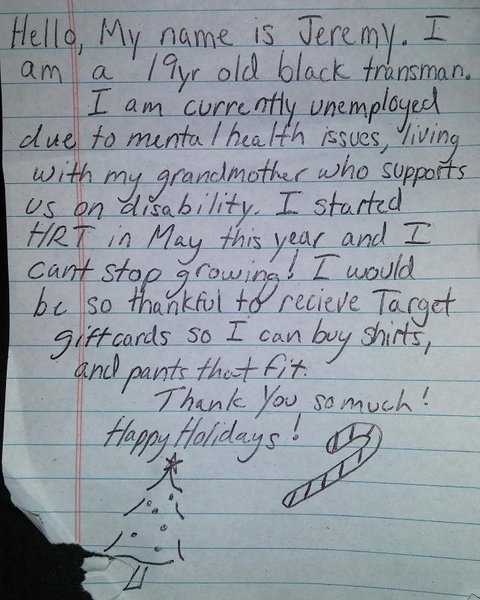 Hello, My name is Jeremy. I
am a 19yr old black transman.
I am currently unemployed
due to mental health issues, living
with my grandmother who supports
us on disability. I started
HRT in May this year and I
cant stop growing! I would
be so thankful to recieve Target
giftcards so I can buy shirts,
and pants that fit.
Thank You so much!
Happy Holidays!